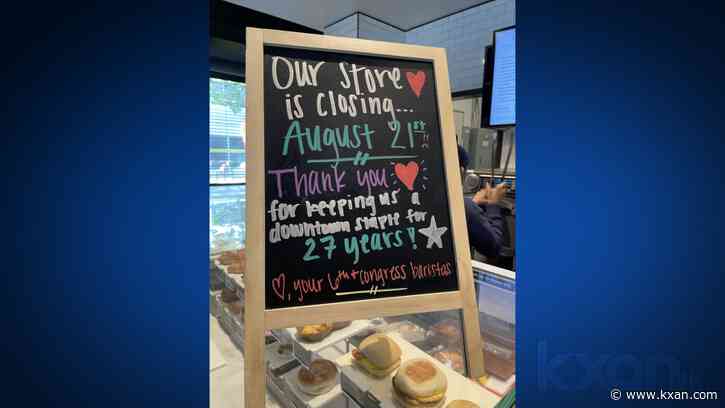 Our Store
is closing...
August 21st
Thank you
for keeping us a
downtown staple for
27 years!
, your 6th + congress baristas
kxan
© www.kxan.com